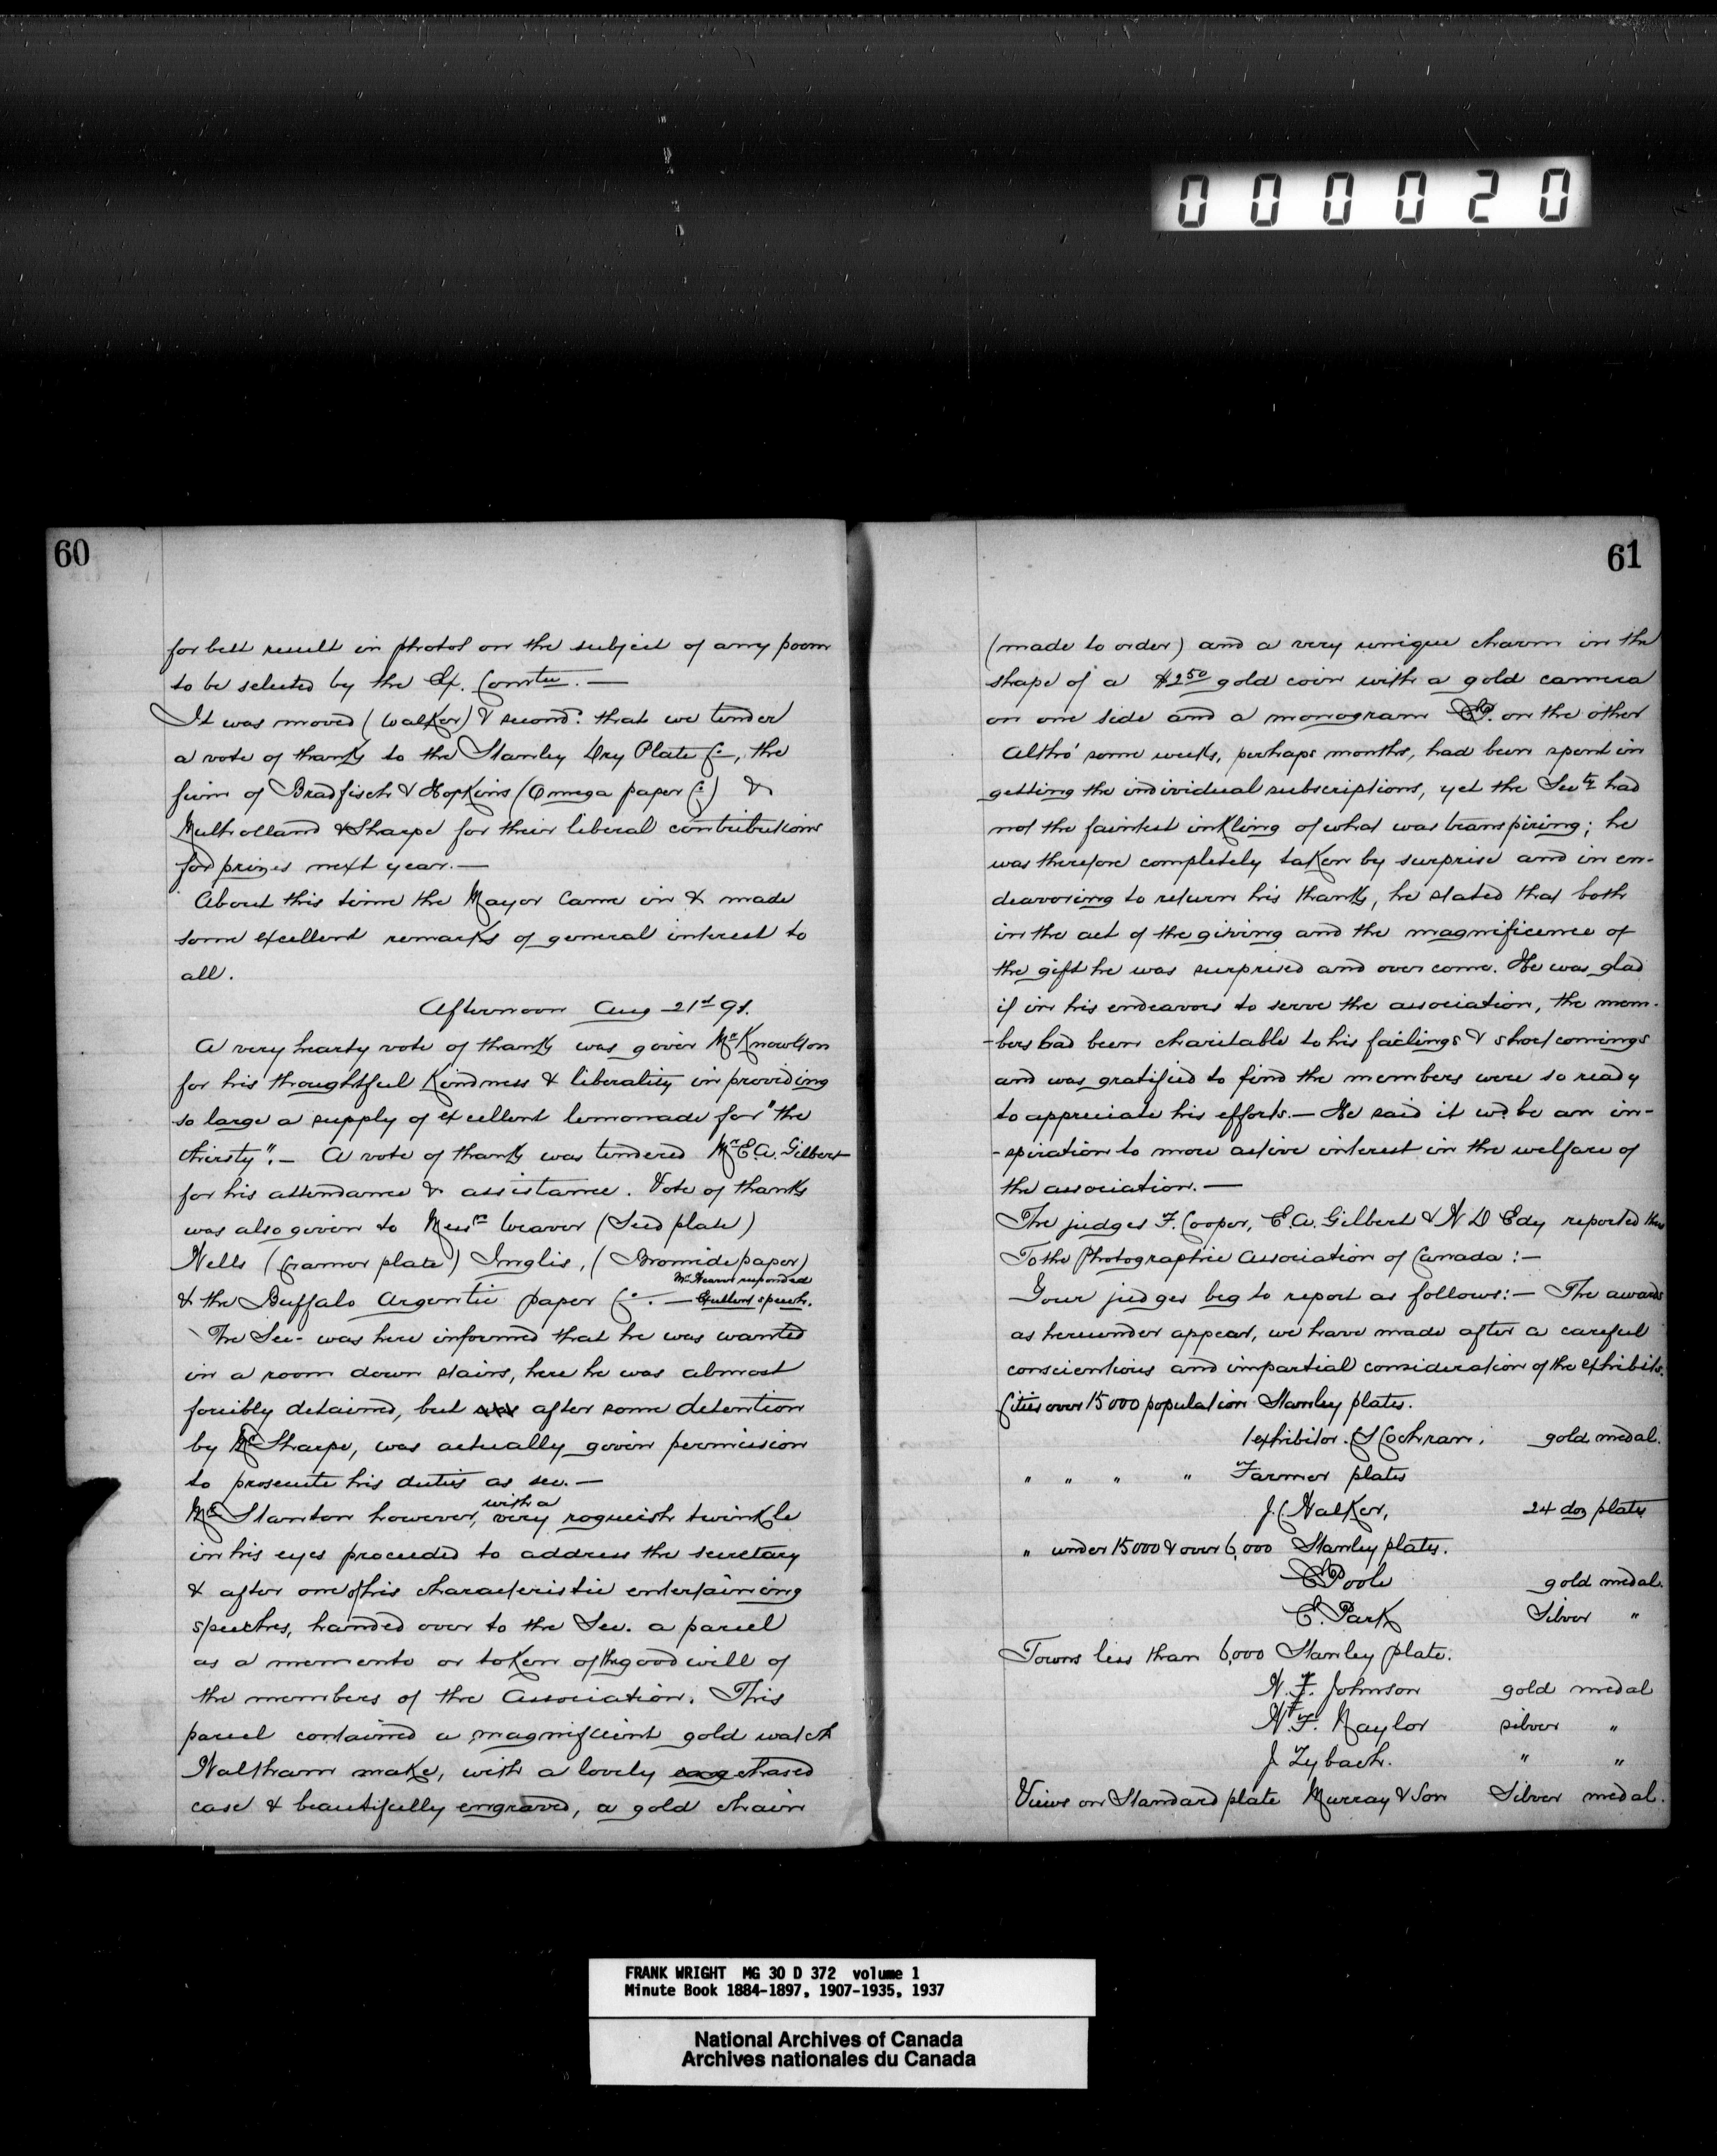 000020
60
for best result in photos on the subject of any poem
to be selected by the Ex. Comtee. —
It was moved (Walker) & second.d that we tender
a vote of thanks to the Stanley Dry Plate Co., the
firm of Bradfisch & Hopkins (Omega paper Co) &
Mulholland & Sharpe for their liberal contributions
for prizes next year. —
About this time the Mayor came in & made
some excellent remarks of general interest to
all.
Afternoon Aug 21st 91.
A very hearty vote of thanks was given Mr Knowlton
for his thoughtful kindness & liberality in providing
so large a supply of excellent lemonade for "the
thirsty". — A vote of thanks was tendered Mr E.A. Gilbert
for his attendance & assistance. Vote of thanks
was also given to Messrs Weaver (Seed plate)
Wells (Cramer plate) Inglis, (Bromide paper)
& the Buffalo Argentic paper Co. — Mr Hearn responded Excellent speech.
The Sec- was here informed that he was wanted
in a room down stairs, here he was almost
forcibly detained, but after some detention
by Mr Sharpe, was actually given permission
to prosecute his duties as sec. —
Mr Stanton however, with a very roguish twinkle
in his eyes proceeded to address the secretary
& after one of his characteristic entertaining
speeches, handed over to the Sec. a parcel
as a memento or token of the good will of
the members of the Association. This
parcel contained a magnificent gold watch
Waltham make, with a lovely chased
case & beautifully engraved, a gold chain
61
(made to order) and a very unique charm in the
shape of a $2.50 gold coin with a gold camera
on one side and a monogram on the other
Altho' some weeks, perhaps months, had been spent in
getting the individual subscriptions, yet the Secty had
not the faintest inkling of what was transpiring; he
was therefore completely taken by surprise and in en-
deavoring to return his thanks, he stated that both
in the act of the giving and the magnificence of
the gift he was surprised and over come. He was glad
if in his endeavors to serve the association, the mem-
-bers had been charitable to his failings & short comings
and was gratified to find the members were so ready
to appreciate his efforts. — He said it wd be an in-
-spiration to more active interest in the welfare of
the association. —
The judges F. Cooper, E.A. Gilbert & N D Edy reported thus
To the Photographic Association of Canada: —
Your judges beg to report as follows: — The awards
as hereunder appear, we have made after a careful
conscientious and impartial consideration of the exhibits.
Cities over 15000 population Stanley plates.
1 exhibitor. S Cochran. gold medal.
" " " " Farmer plates
J.C. Walker, 24 doz plates
" under 15000 & over 6,000 Stanley plates.
Poole gold medal.
E. Park Silver "
Towns less than 6,000 Stanley plate.
W. F. Johnson gold medal
W. F. Naylor silver "
J Zybach. " "
Views on Standard plate Murray & Son Silver medal.
FRANK WRIGHT MG 30 D 372 volume 1
Minute Book 1884-1897, 1907-1935, 1937
National Archives of Canada
Archives nationales du Canada